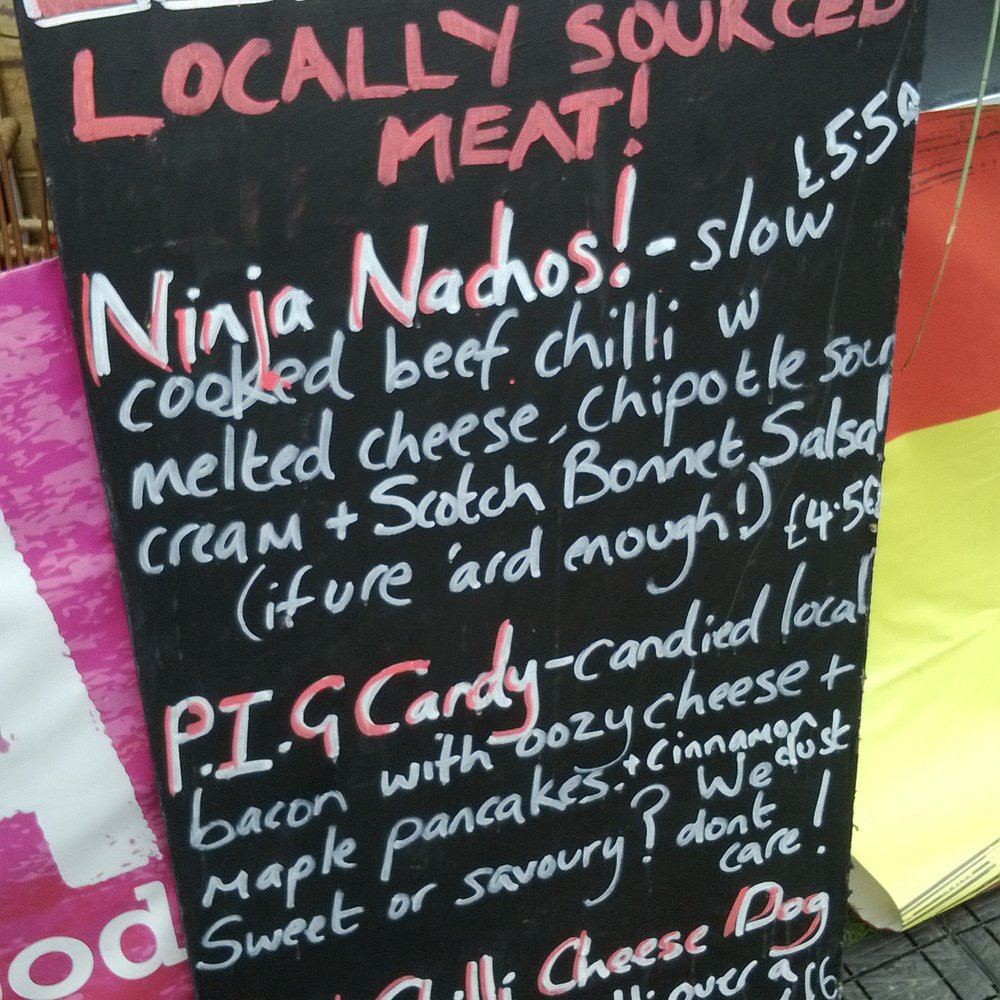 LOCALLY SOURCED
MEAT!
£5.50
Ninja Nachos! - slow
cooked beef chilli w
melted cheese, chipotle sour
cream + Scotch Bonnet Salsa!
(if ure 'ard enough!)
£4.50
P.I.G Candy - candied local
bacon with oozy cheese +
maple pancakes. + cinnamon
dust
Sweet or savoury? We
dont
care!
Chilli Cheese Dog
over a
od